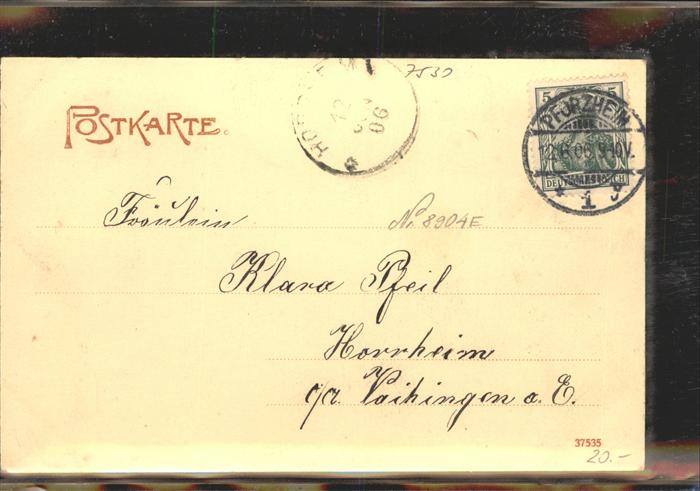 7530
POSTKARTE.
12
06
5 5
PFORZHEIM
12.6.06.
DEUTSCHES REICH
1
Fräulein
No. 8904E
Klara Pfeil
Horrheim
o/a. Vaihingen a. E.
37535
20.-